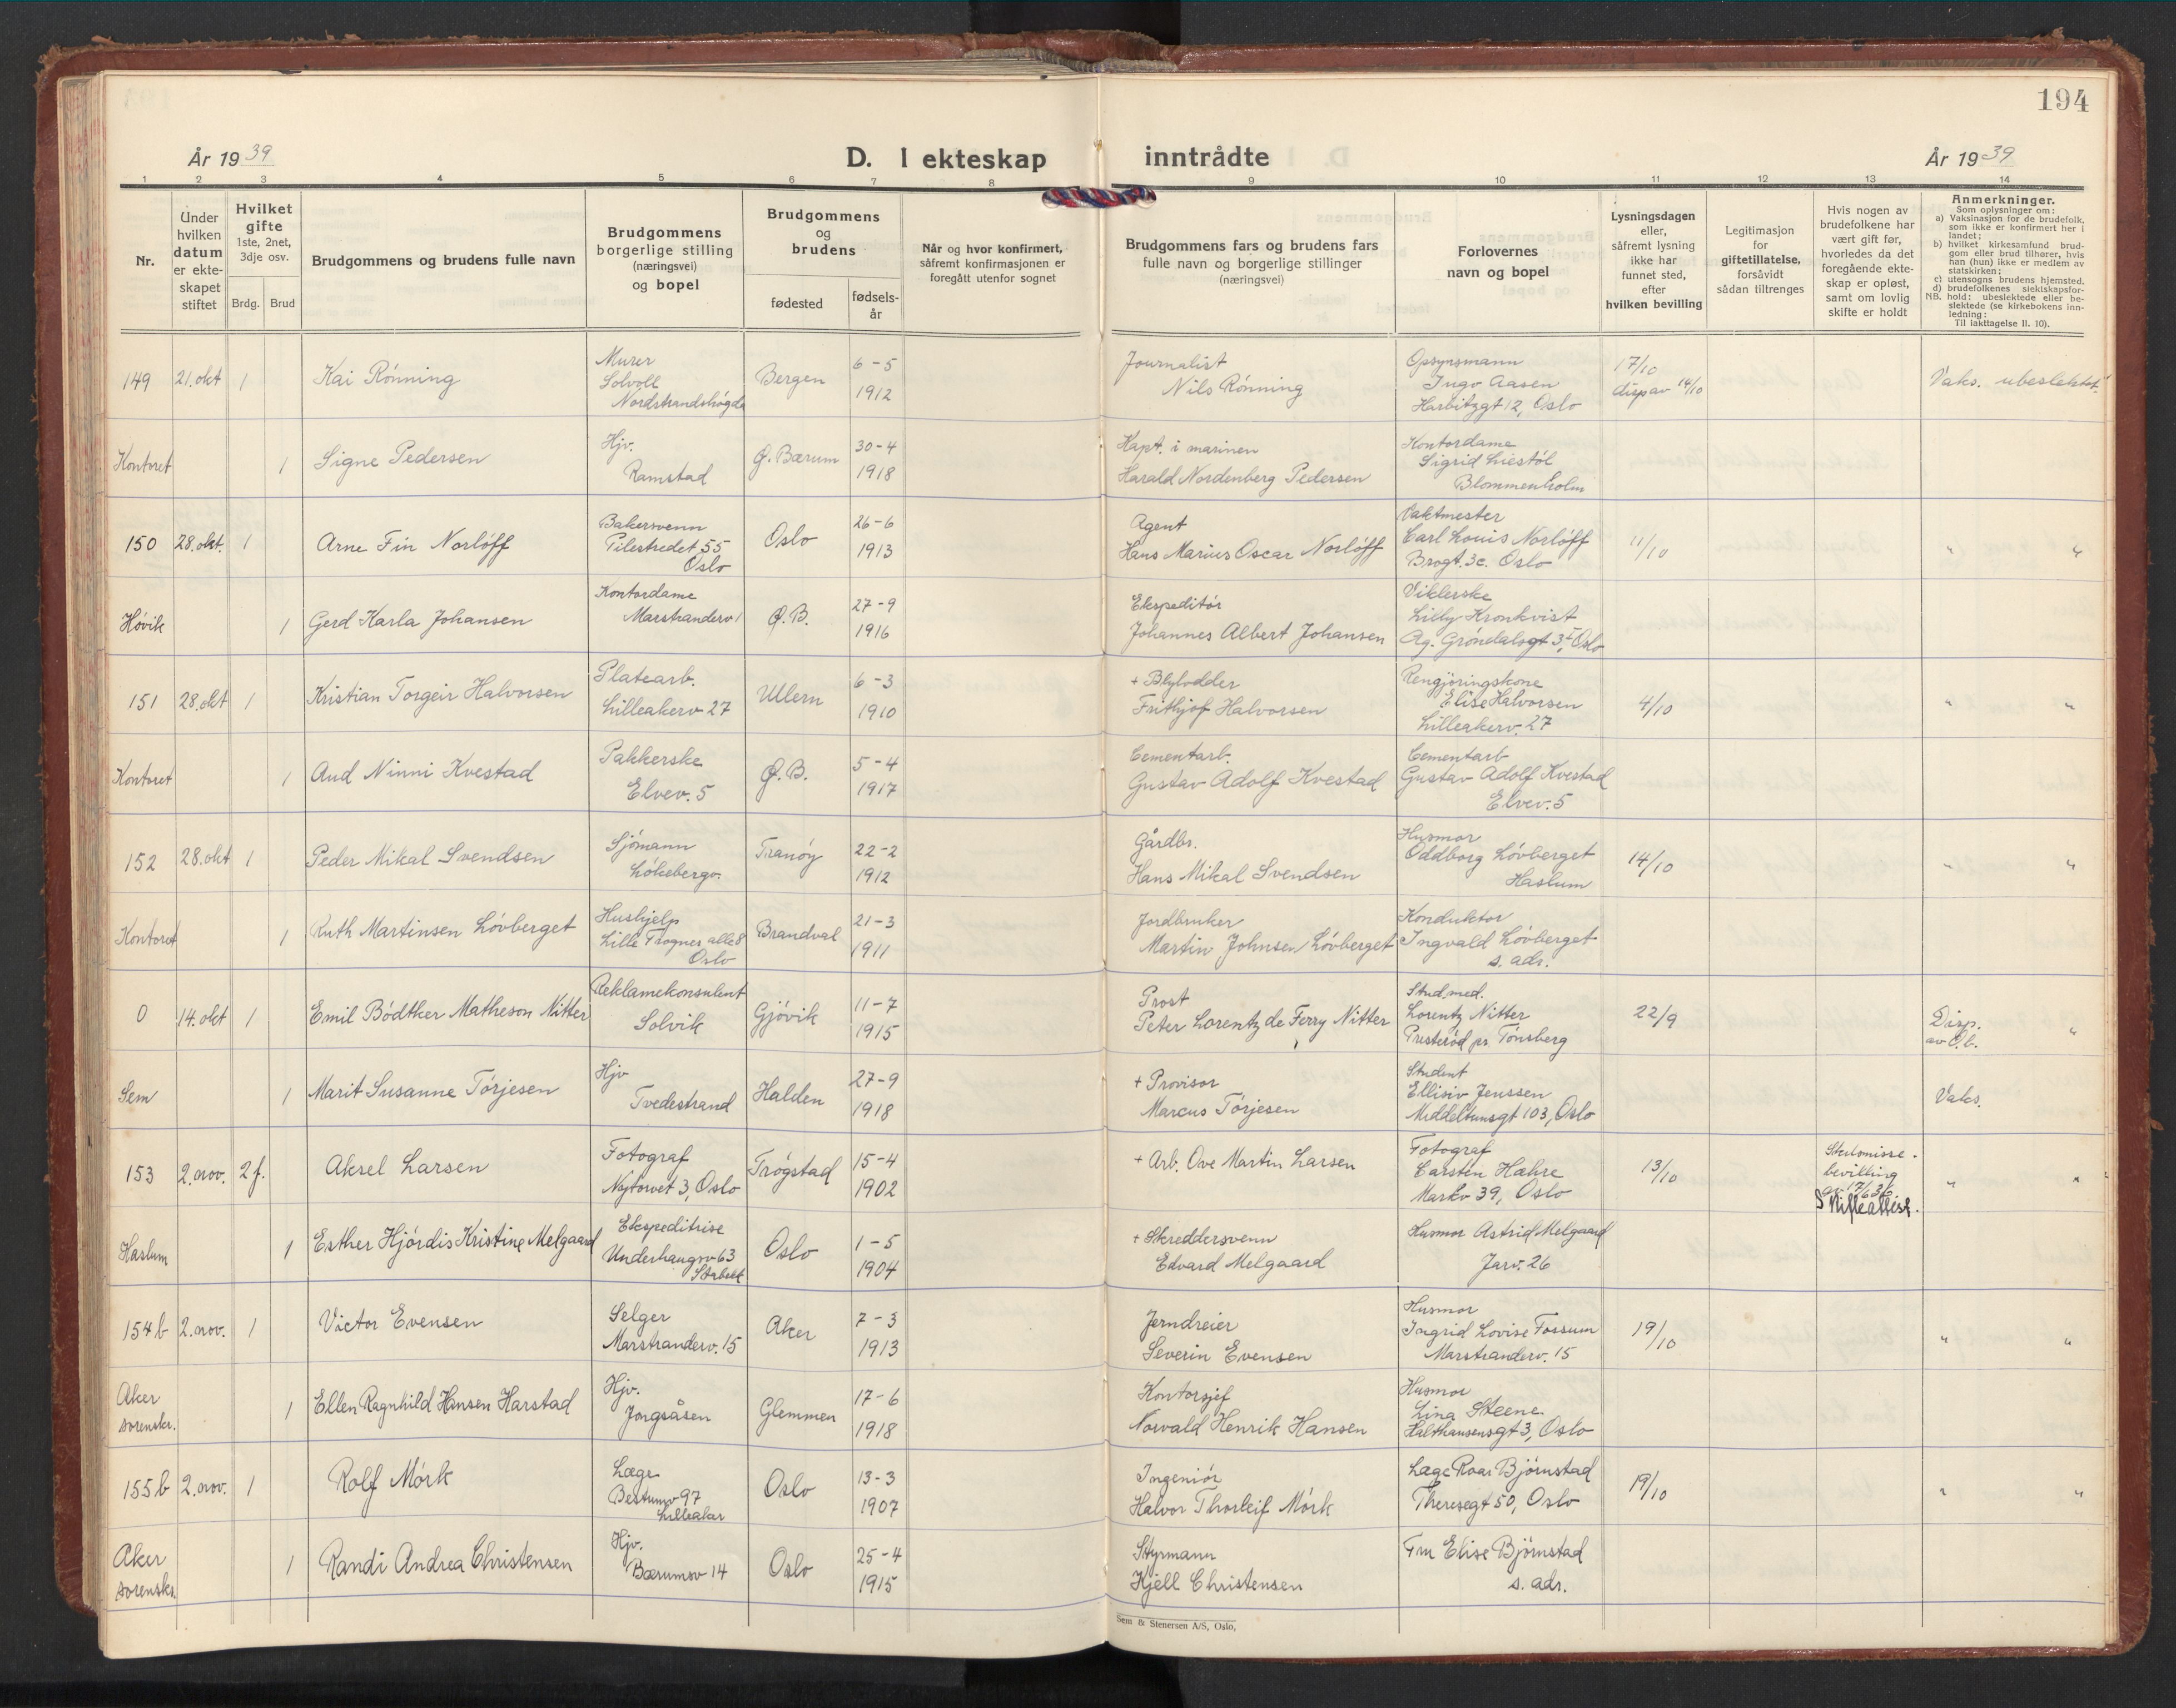 194
År 1939
D. I ekteskap inntrådte
År 1939
1 2 3 4 5 6 7 8 9 10 11 12 13 14
Nr.
Under hvilken datum er ekteskapet stiftet
Hvilket gifte
1ste, 2net, 3dje osv.
Brdg. Brud
Brudgommens og brudens fulle navn
Brudgommens borgerlige stilling (næringsvei) og bopel
Brudgommens og brudens
fødested
fødselsår
Når og hvor konfirmert, såfremt konfirmasjonen er foregått utenfor sognet
Brudgommens fars og brudens fars fulle navn og borgerlige stillinger (næringsvei)
Forlovernes navn og bopel
Lysningsdagen eller, såfremt lysning ikke har funnet sted, efter hvilken bevilling
Legitimasjon for giftetillatelse, forsåvidt sådan tiltrenges
Hvis nogen av brudefolkene har vært gift før, hvorledes da det foregående ekteskap er opløst, samt om lovlig skifte er holdt
Anmerkninger.
Som oplysninger om:
a) Vaksinasjon for de brudefolk, som ikke er konfirmert her i landet;
b) hvilket kirkesamfund brudgom eller brud tilhører, hvis han (hun) ikke er medlem av statskirken;
c) utensogns brudens hjemsted.
d) brudefolkenes slektskapsforhold: ubeslektede eller beslektede (se kirkebokens innledning:
NB. Til iakttagelse II. 10).
149 21. okt 1 Kai Rönning Murer Solvoll Nordstrandshögda Bergen 6-5 1912 Journalist Nils Rönning Opsynsmann Ingv Aasen Harbitzgt 12, Oslo 17/10 disp av 14/10 Vaks. ubeslektet
Kontoret 1 Signe Pedersen Hjv. Ramstad Ø. Bærum 30-4 1918 Kapt. i marinen Harald Nordenberg Pedersen Kontordame Sigrid Liestöl Blommenholm
150 28. okt. 1 Arne Fin Norlöff Bakersvenn Pilestredet 55 Oslo Oslo 26-6 1913 Agent Hans Marius Oscar Norlöff Vaktmester Carl Louis Norlöff Brogt. 3c. Oslo 11/10 " "
Hövik 1 Gerd Karla Johansen Kontordame Marstranderv 1 Ø.B. 27-9 1916 Ekspeditör Johannes Albert Johansen Viklerske Lilly Kronkvist Ag. Gröndalsgt 3 I, Oslo
151 28. okt 1 Kristian Torgeir Halvorsen Platearb. Lilleakerv 27 Ullern 6-3 1910 + Blylodder Frithjof Halvorsen Rengjöringskone Elise Halvorsen Lilleakerv. 27 4/10 " "
Kontoret 1 Aud Ninni Kvestad Pakkerske Elvev. 5 Ø.B. 5-4 1917 Cementarb. Gustav Adolf Kvestad Cementarb Gustav Adolf Kvestad Elvev. 5
152 28. okt 1 Peder Mikal Svendsen Sjömann Lökebergv. Tranöy 22-2 1912 Gårdbr. Hans Mikal Svendsen Husmor Oddborg Lövberget Haslum 14/10 " "
Kontoret 1 Ruth Martinsen Lövberget Hushjelp Lille Frogner alle 8 Oslo Brandval 21-3 1911 Jordbruker Martin Johnsen Lövberget Konduktor Ingvald Lövberget s. adr.
0 14. okt 1 Emil Bödtker Matheson Nitter Reklamekonsulent Solvik Gjövik 11-7 1915 Prost Peter Lorentz de Ferry Nitter Stud. med. Lorentz Nitter Presteröd pr Tönsberg 22/9 Disp. av O.b. "
Sem 1 Marit Susanne Törjesen Hjv Tvedestrand Halden 27-9 1918 + Provisor Marcus Törjesen Student Ellisiv Jenssen Middeltunsgt 103, Oslo Vaks.
153 2. nov. 2 f. Aksel Larsen Fotograf Nytorvet 3, Oslo Trögstad 15-4 1902 + Arb. Ove Martin Larsen Fotograf Carsten Hæhre Markv 39, Oslo 13/10 Skilsmissebevilling av 17/6 36 Skifteattest. " "
Haslum 1 Esther Hjördis Kristine Melgaard Ekspeditrise Underhaugsv 63 Stabekk Oslo 1-5 1904 + Skreddersvenn Edvard Melgaard Husmor Astrid Melgaard Jarv. 26
154 b 2. nov. 1 Victor Evensen Selger Marstranderv. 15 Aker 7-3 1913 Jerndreier Severin Evensen Husmor Ingrid Lovise Fossum Marstranderv. 15 19/10 " "
Aker sorenskr. 1 Ellen Ragnhild Hansen Harstad Hjv. Jongsåsen Glemmen 17-6 1918 Kontorsjef Norvald Henrik Hansen Husmor Lina Steene Halthausensgt 3, Oslo
155 b 2. nov. 1 Rolf Mörk Læge Bestumv 97 Lilleaker Oslo 13-3 1907 Ingeniör Halvor Thorleif Mörk Læge Roar Björnstad Theresegt 50, Oslo 19/10 " "
Aker sorenskr. 1 Randi Andrea Christensen Hjv. Bærumsv 14 Oslo 25-4 1915 Styrmann Kjell Christensen Fru Elise Björnstad s. adr.
Sem & Stenersen A/S, Oslo,